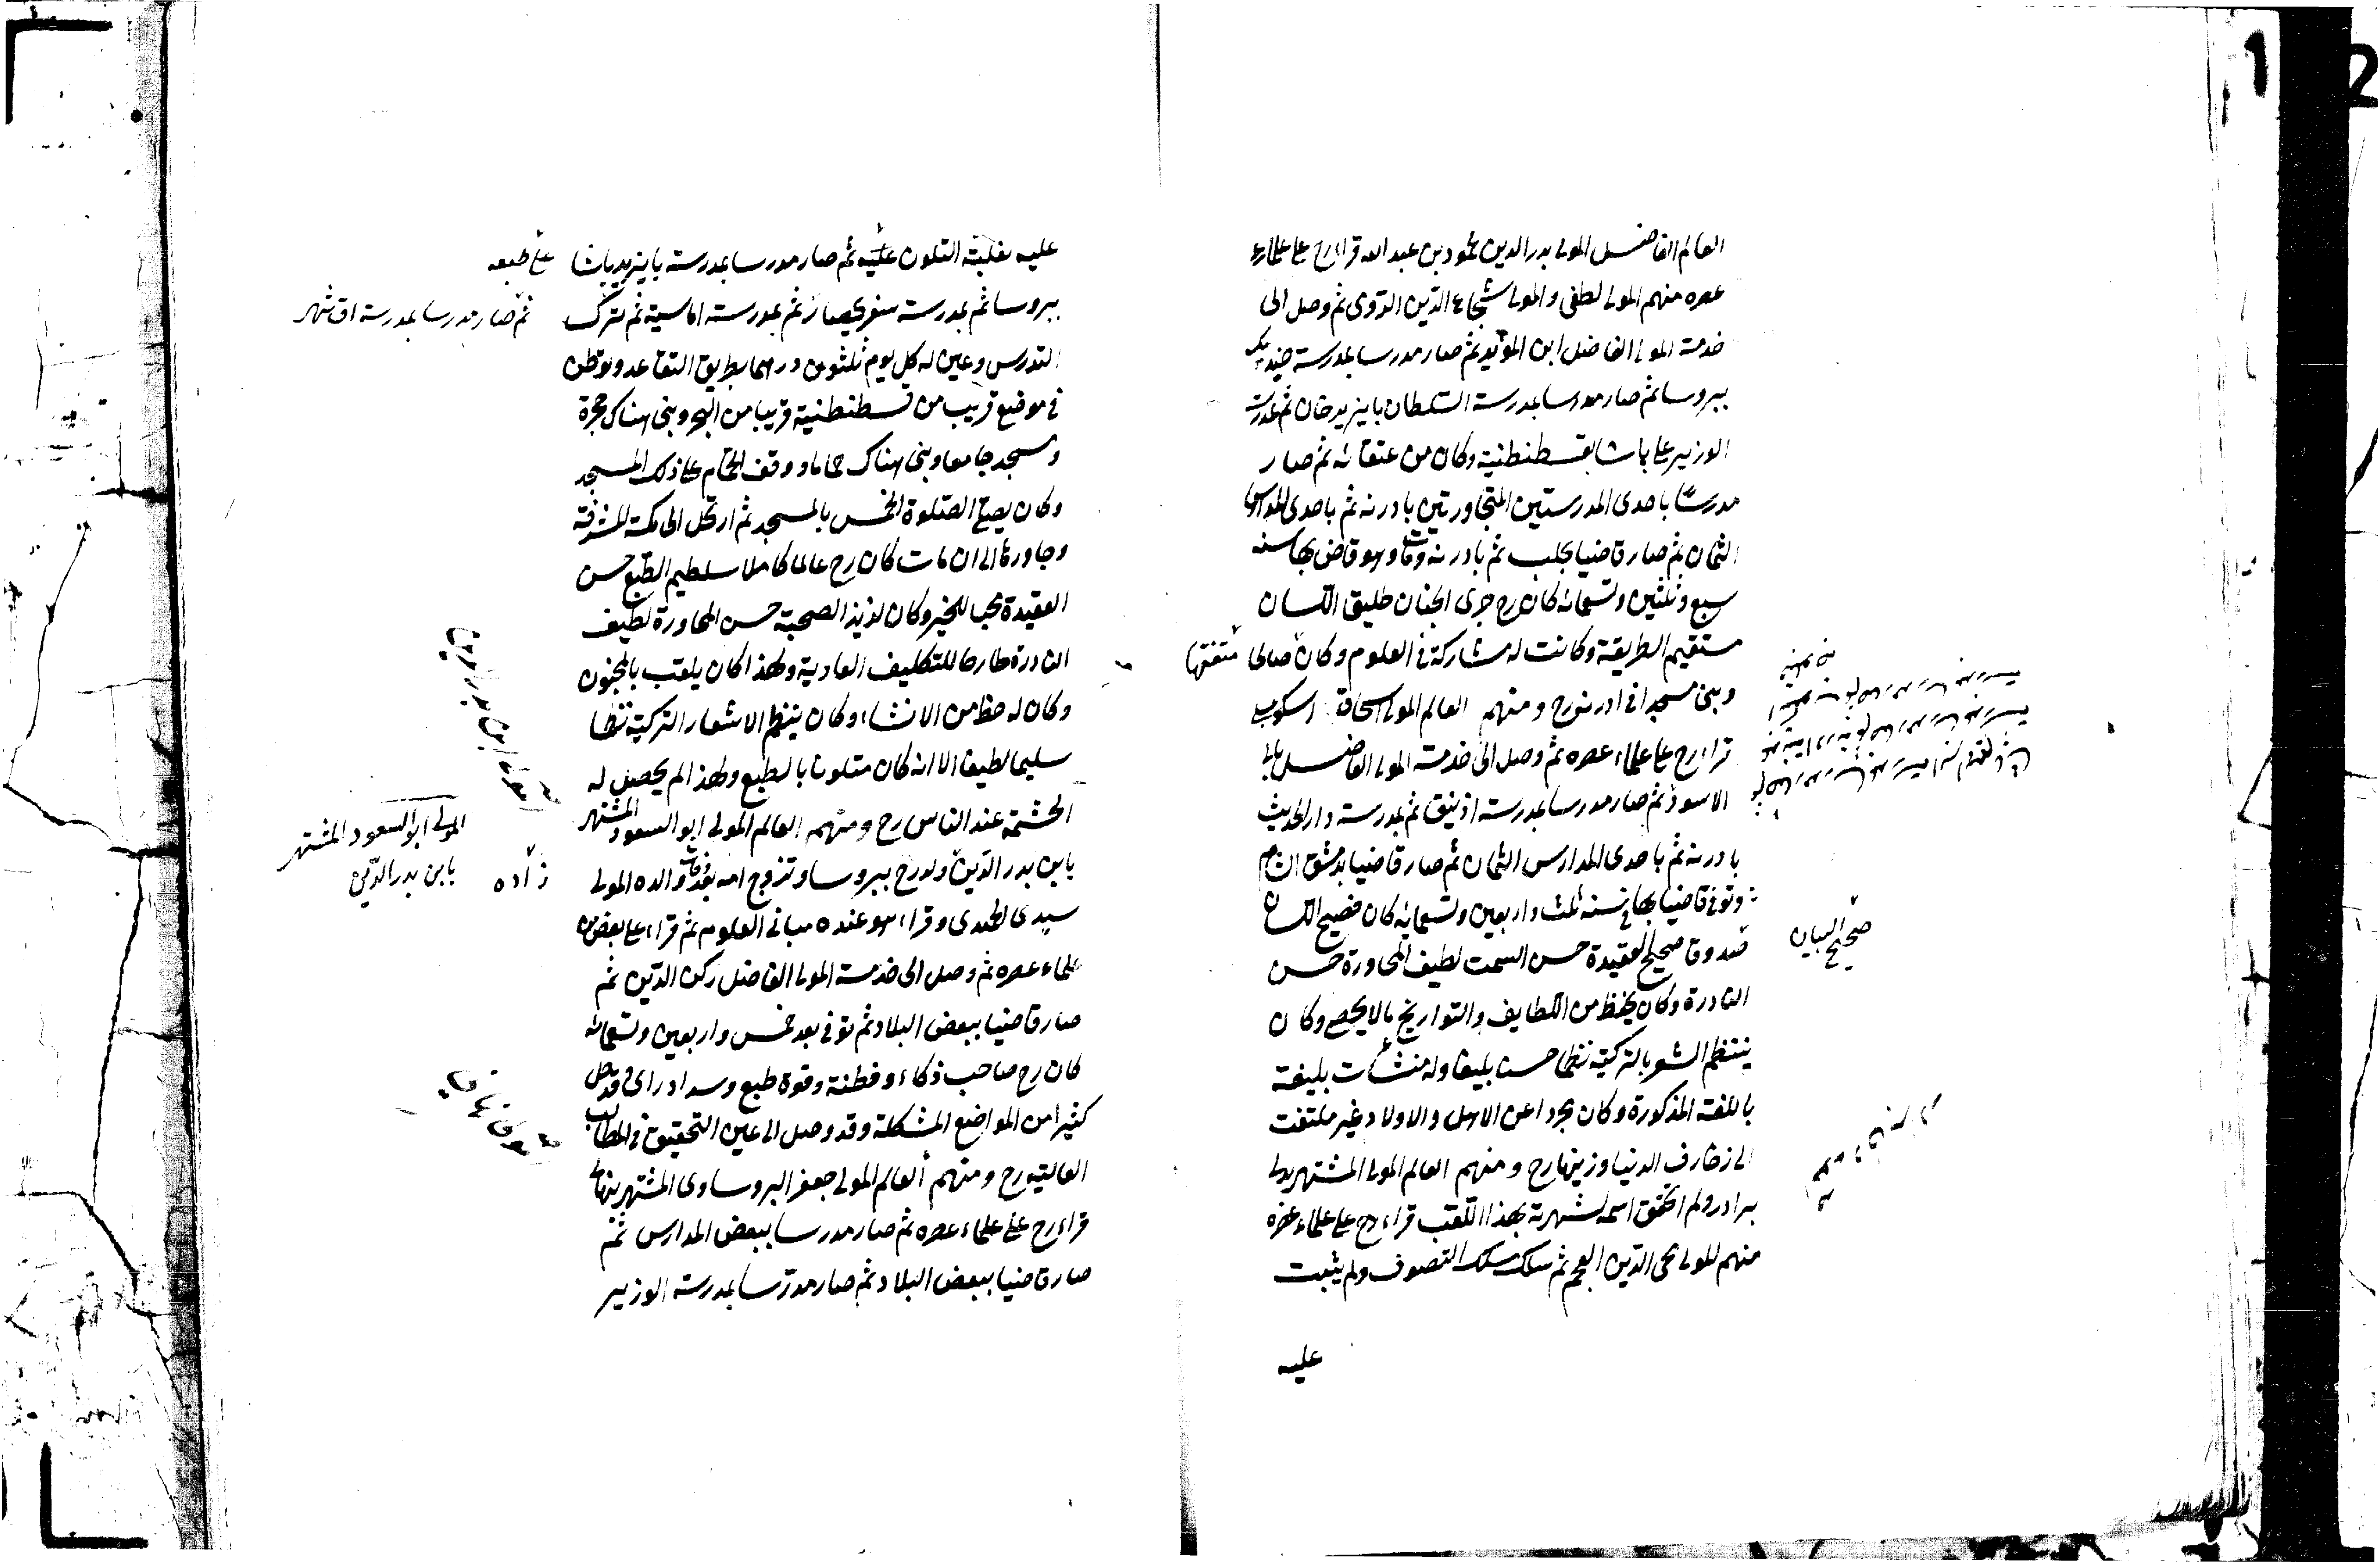 العالم الفاضل المولى بدر الدين محمود بن عبد الله قرا رح على علماء
عصره منهم المولى لطفى والمولى شجاع الدين الرومى ثم وصل الى
خدمة المولى الفاضل ابن المؤيد ثم صار مدرسا بمدرسة جنديك
ببروسا ثم صار مدرسا بمدرسة السلطان بايزيد خان ثم بمدرسة
الوزير على باشا بقسطنطنية وكان من عتقائه ثم صار
مدرسا باحدى المدرستين المتجاورتين بادرنه ثم باحدى المدارس
الثمان ثم صار قاضيا بحلب ثم بادرنه ومات وهو قاض بها سنه
سبع وثلثين وتسعمائه كان رح جرى الجنان طليق اللسان
مستقيم الطريقة وكانت له مشاركة فى العلوم وكان صالحا متفقها
وبنى مسجدا فى ادرنه رح ومنهم العالم المولى اسحاق اسكوبى
قراء رح على علماء عصره ثم وصل الى خدمة المولى الفاضل بالى
الاسود ثم صار مدرسا بمدرسة ازنيق ثم بمدرسة دار الحديث
بادرنه ثم باحدى المدارس الثمان ثم صار قاضيا بدمشق الشام
وتوفى قاضيا بها فى سنه ثلث واربعين وتسعمائه كان فصيح اللسان
صدوقا صحيح العقيدة حسن السمت لطيف المحاورة حسن
صحيح البيان
النادرة وكان يحفظ من اللطايف والتواريخ ما لا يحصى وكان
ينتظم الشعر بالتركية نظما حسنا بليغا وله منشآت بليغة
باللغة المذكورة وكان مجردا عن الاهل والاولاد غير ملتفت
الى زخارف الدنيا وزينها رح ومنهم العالم المولى المشتهر بدلى
برادر ولم اتحقق اسمه لشهرته بهذا اللقب قراء رح على علماء عصره
منهم المولى محى الدين العجم ثم سلك مسلك التصوف ولم يثبت
عليه
عليه لغلبة التلون عليه ثم صار مدرسا بمدرسة بايزيد باشا
على طبعه
ببروسا ثم بمدرسة سفريحصار ثم بمدرسة اماسية ثم ترك
ثم صار مدرسا بمدرسة اق شهر
التدريس وعين له كل يوم ثلثون درهما بطريق التقاعد وتوطن
فى موضع قريب من قسطنطنية قريبا من البحر وبنى هناك حجرة
ومسجد جامعا وبنى هناك حماما ووقف الحمام على ذلك المسجد
وكان يصلى الصلوة الخمس بالمسجد ثم ارتحل الى مكة المشرفة
وجاور بها الى ان مات كان رح عالما كاملا سليم الطبع حسن
العقيدة محبا للخير وكان لذيذ الصحبة حسن المحاورة لطيف
النادرة طارحا للتكليف العادية ولهذا كان يلقب بالمجنون
وكان له حظ من الانشاء وكان ينظم الاشعار التركية نظما
سليما لطيفا الا انه كان متلونا بالطبع ولهذا لم يحصل له
الحشمة عند الناس رح ومنهم العالم المولى ابو السعود المشتهر
المولى ابو السعود المشتهر
بابن بدر الدين
بابن بدر الدين ولد رح ببروسا وتزوج امه بعد وفات والده المولى
زاده
سيدى الحميدى وقراء هو عنده مبانى العلوم ثم قراء على بعض من
علماء عصره ثم وصل الى خدمة المولى الفاضل ركن الدين ثم
صار قاضيا ببعض البلاد ثم توفى بعد خمس واربعين وتسعمائه
كان رح صاحب ذكاء وفطنة وقوة طبع وسداد راى وقد حل
كثيرا من المواضع المشكلة وقد وصل الى عين التحقيق فى المطالب
العالية رح ومنهم العالم المولى جعفر البروساوى المشتهر بنهالى
قراء رح على علماء عصره ثم صار مدرسا ببعض المدارس ثم
صار قاضيا ببعض البلاد ثم صار مدرسا بمدرسة الوزير